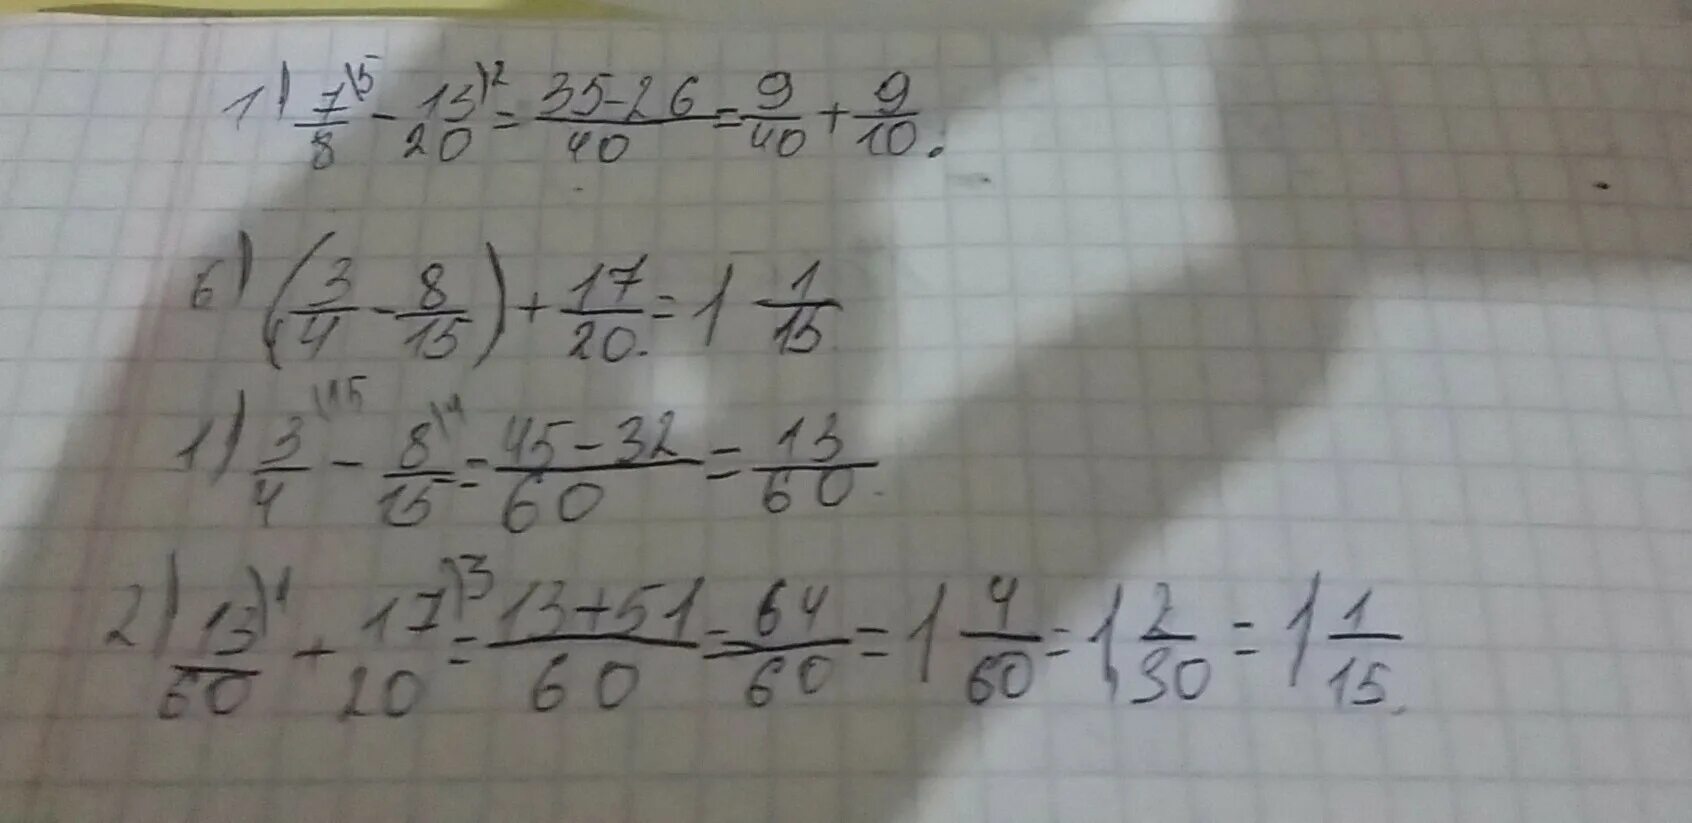 1) 7/8\5 - 13/20\2 = 35-26/40 = 9/40 + 9/10.
б) (3/4 - 8/15) + 17/20 = 1 1/15
1) 3/4\15 - 8/15\4 = 45-32/60 = 13/60.
2) 13/60\1 + 17/20\3 = 13+51/60 = 64/60 = 1 4/60 = 1 2/30 = 1 1/15.